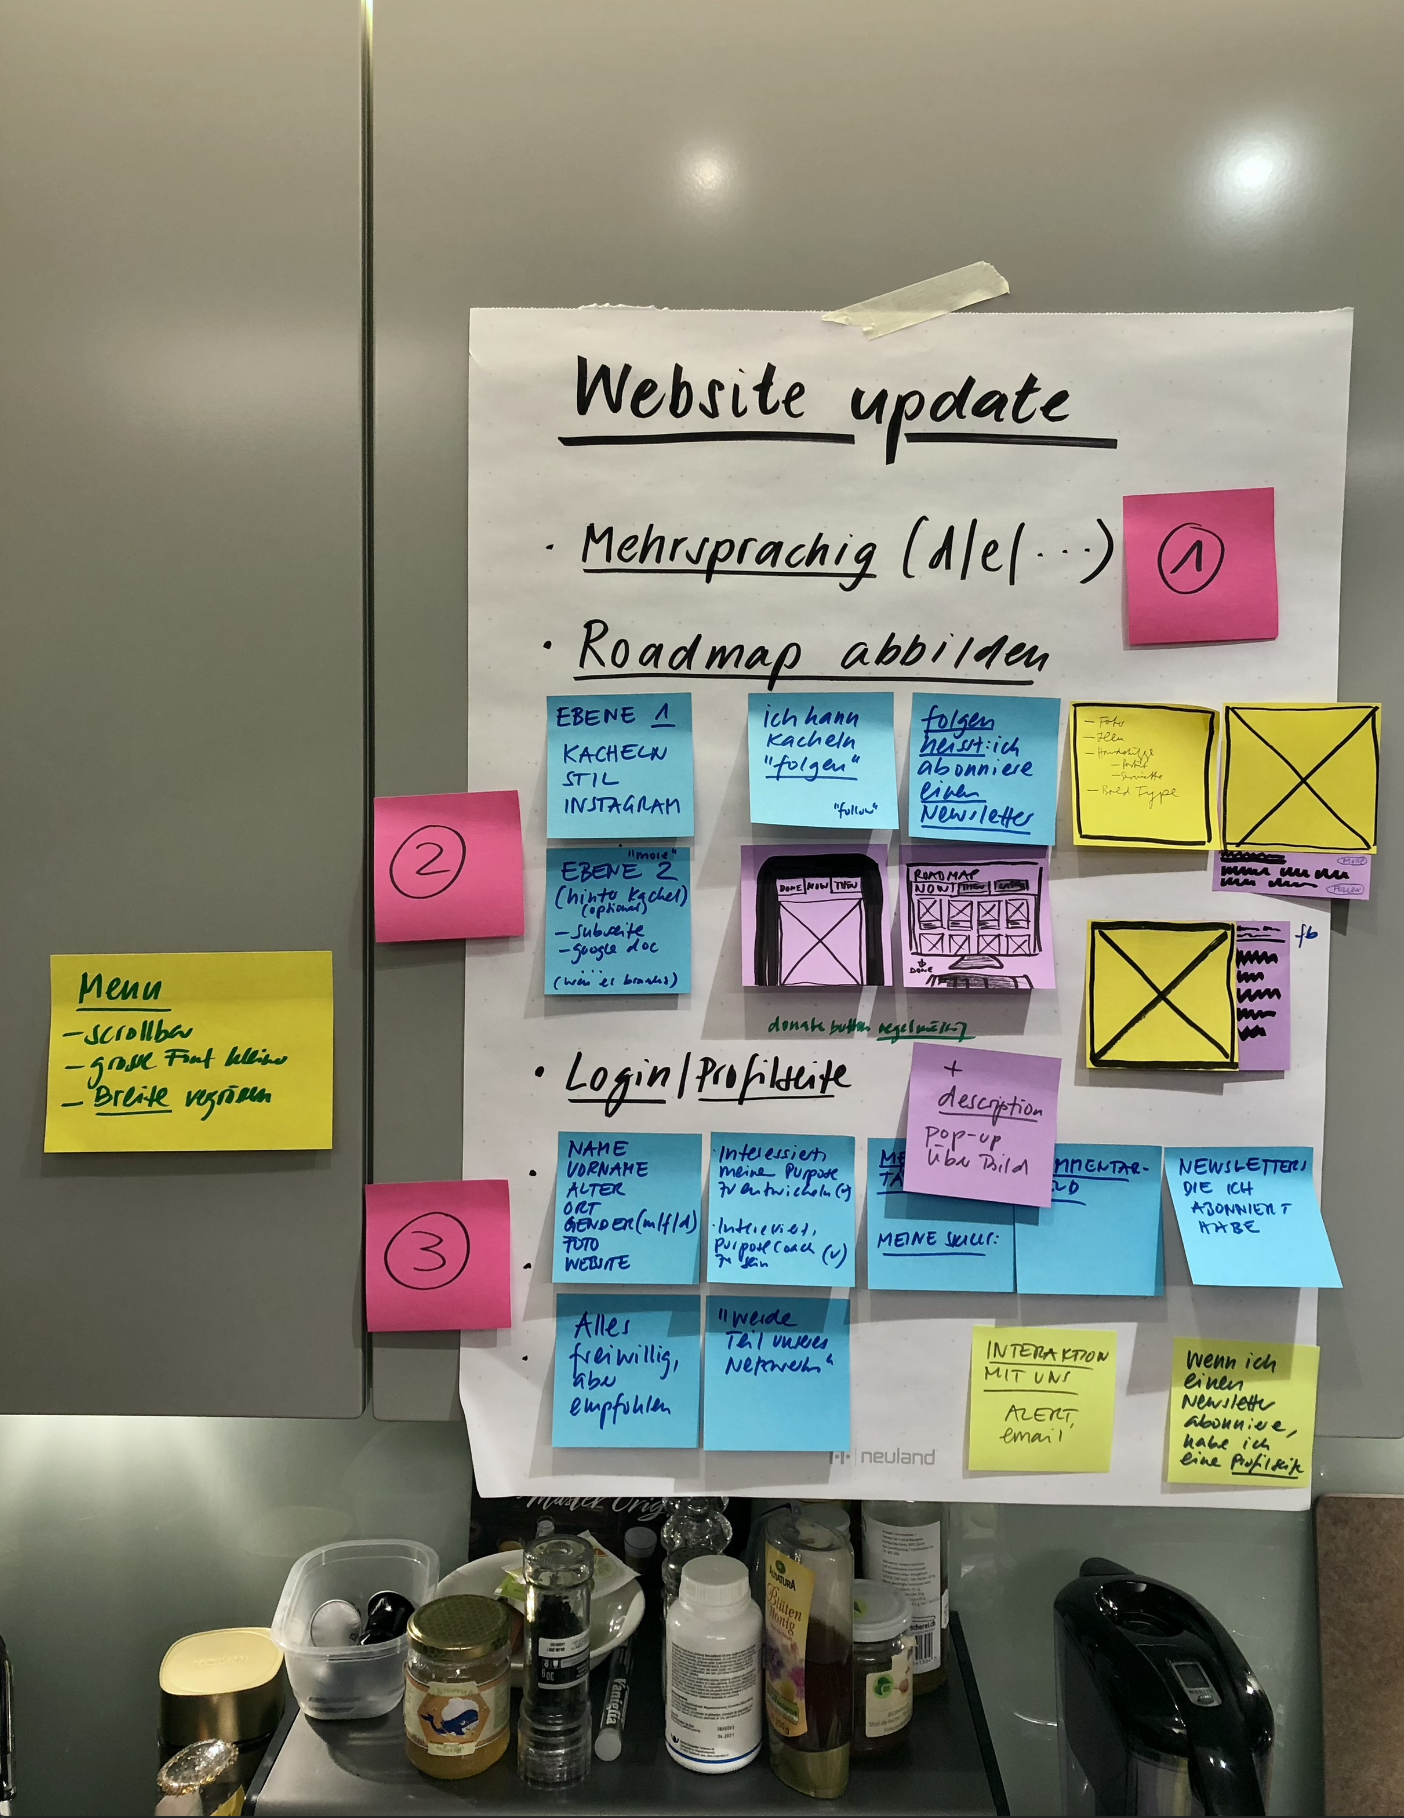 Website update
· Mehrsprachig (d/e/...)
1
· Roadmap abbilden
EBENE 1
KACHELN
STIL
INSTAGRAM
ich kann
Kacheln
"folgen"
"follow"
folgen
heisst: ich
abonniere
einen
Newsletter
- Foto
- Bold Type
2
"more"
EBENE 2
(hinter Kachel)
(optional)
- subseite
- google doc
...
(was es braucht)
DONE NOW THEN
ROADMAP
NOW THEN
DONE
MORE
FOLLOW
fb
donate button regelmässig
Menu
- scrollbar
- grosse Font kleiner
- Breite vergrössern
· Login/Profilseite
+
description
pop-up
über Bild
3
NAME
VORNAME
ALTER
ORT
GENDER (m/f/d)
FOTO
WEBSITE
· Interessiert,
meine Purpose
zu entwickeln (v)
· Interessiert,
purpose coach
zu sein (v)
ME
TA
MEINE SKILLS:
MMENTAR-
LD
NEWSLETTERS
DIE ICH
ABONNIERT
HABE
Alles
freiwillig,
aber
empfohlen
"Werde
Teil unseres
Netzwerks"
INTERAKTION
MIT UNS
ALERT,
email
Wenn ich
einen
Newsletter
abonniere,
habe ich
eine Profilseite
neuland
Master Orig
ALNATURA
Blüten
Honig